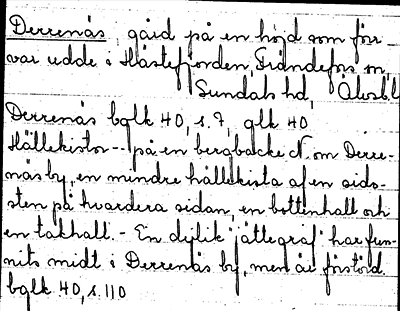 Derrenäs, gård på en höjd som förr
var udde i Hästefjorden, Frändefors sn,
Sundals hd, Älvsb.l
Derrenäs bqlk 40, s. 7, qlk 40
Hällekistor -- på en bergbacke N. om Derre-
näs by, en mindre hällekista af en sido-
sten på hvardera sidan, en bottenhall och
en takhall. - En dylik "jättegraf" har fun-
nits midt i Derrenäs by, men är förstörd.
bqlk 40, s. 110